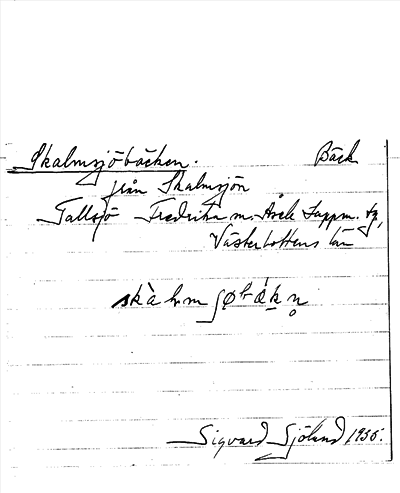 Skalmsjöbäcken. Bäck
från Skalmsjön
Tallsjö Fredrika sn. Åsele Lappm. tg,
Västerbottens län
Sigvard Sjölund 1935.